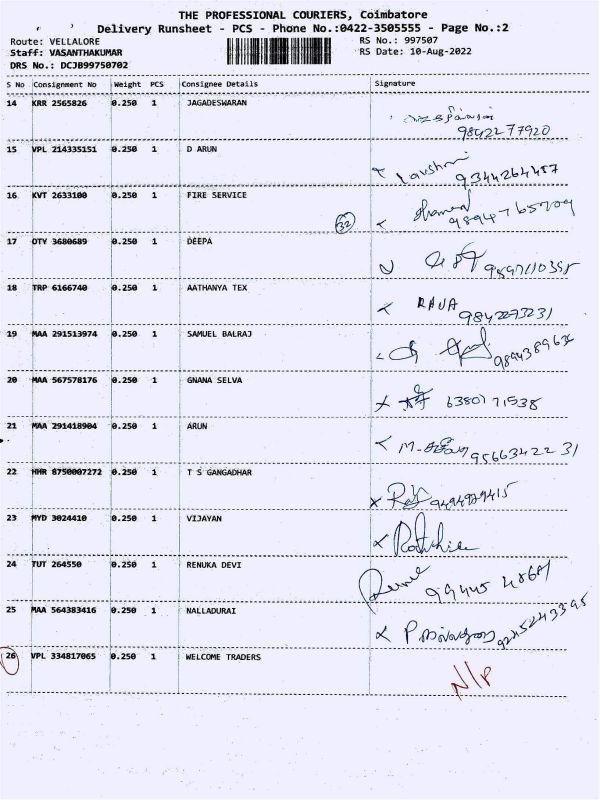 THE PROFESSIONAL COURIERS, Coimbatore
Delivery Runsheet - PCS - Phone No.:0422-3505555 - Page No.:2
Route: VELLALORE RS No.: 997507
Staff: VASANTHAKUMAR RS Date: 10-Aug-2022
DRS No.: DCJB99750702
S No Consignment No Weight PCS Consignee Details Signature
14 KRR 2565826 0.250 1 JAGADESWARAN
9842277920
15 VPL 214335151 0.250 1 D ARUN
9344264457
16 KVT 2633100 0.250 1 FIRE SERVICE
32
17 OTY 3680689 0.250 1 DEEPA
18 TRP 6166740 0.250 1 AATHANYA TEX
RAJA
19 MAA 291513974 0.250 1 SAMUEL BALRAJ
20 MAA 567578176 0.250 1 GNANA SELVA
21 MAA 291418904 0.250 1 ARUN
9566342231
22 HHR 8750007272 0.250 1 T S GANGADHAR
23 MYD 3024410 0.250 1 VIJAYAN
24 TUT 264550 0.250 1 RENUKA DEVI
25 MAA 564383416 0.250 1 NALLADURAI
26 VPL 334817065 0.250 1 WELCOME TRADERS
N/P